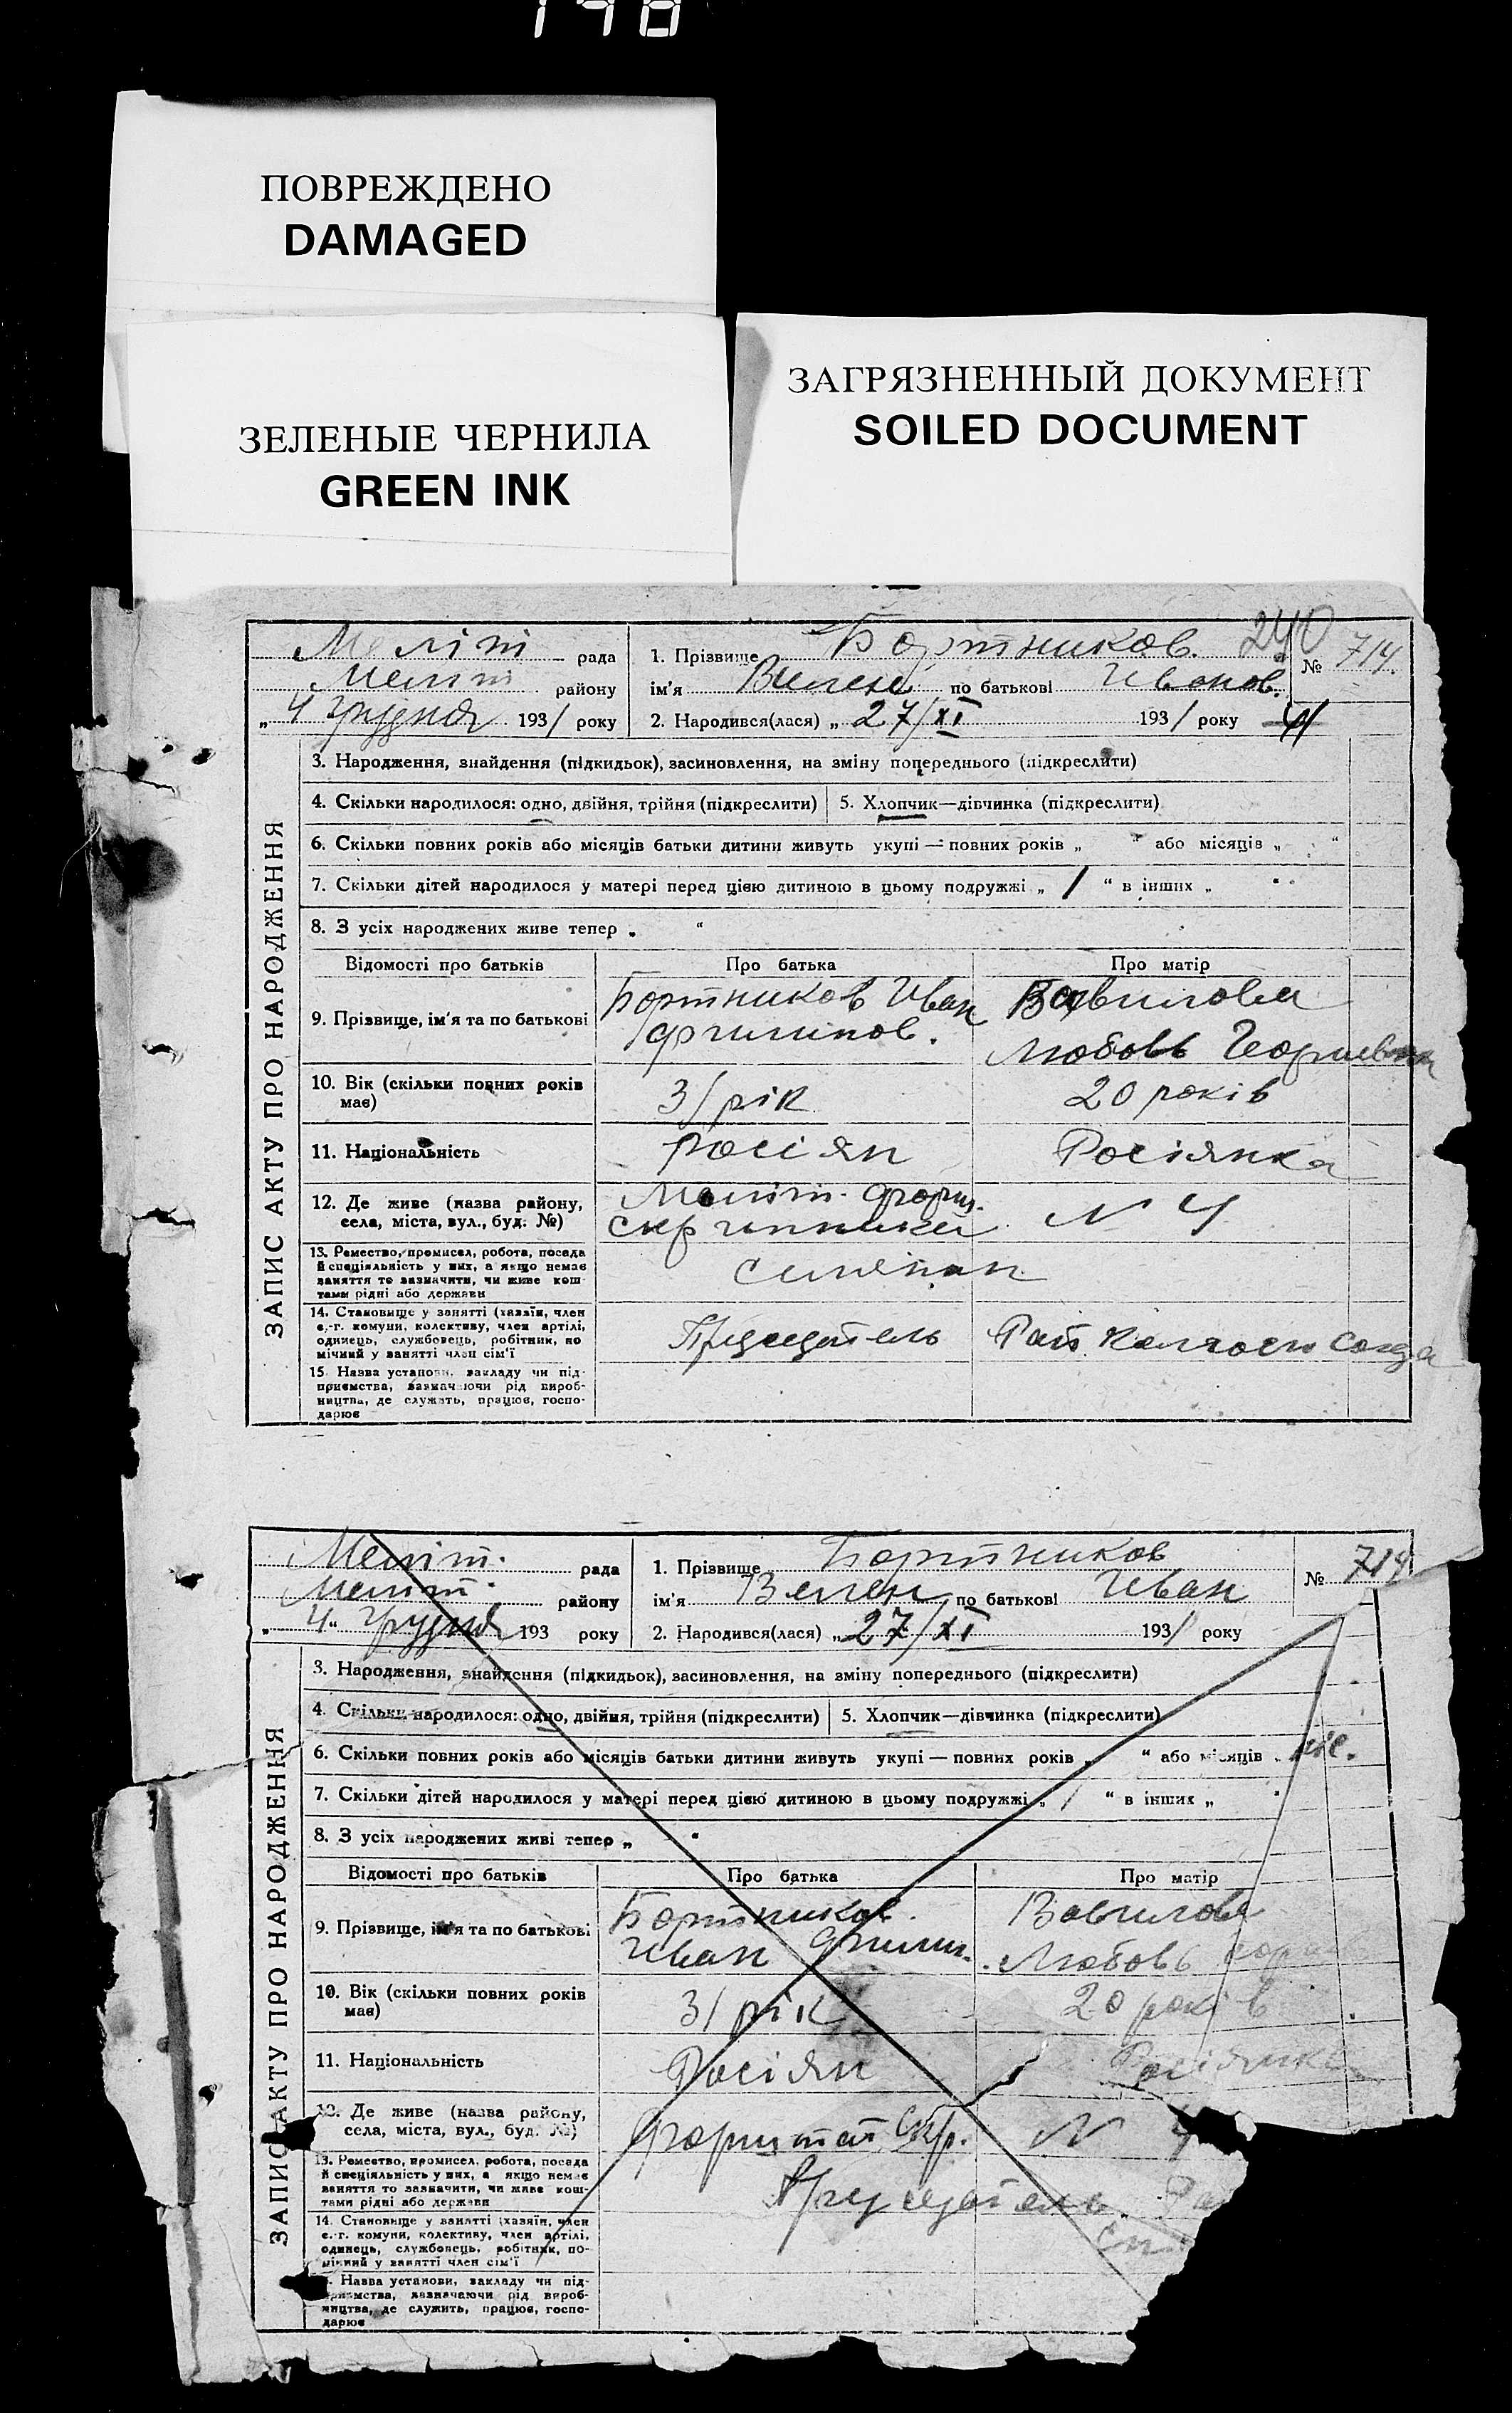 198
ПОВРЕЖДЕНО
DAMAGED
ЗЕЛЕНЫЕ ЧЕРНИЛА
GREEN INK
ЗАГРЯЗНЕННЫЙ ДОКУМЕНТ
SOILED DOCUMENT
240
Меліт рада
Меліт району
„ 4 Грудня 1931 року
1. Прізвище Бортников № 714.
ім'я Вилен по батькові Иванов.
2. Народився(лася) „ 27/XI 1931 року
ЗАПИС АКТУ ПРО НАРОДЖЕННЯ
3. Народження, знайдення (підкидьок), засиновлення, на зміну попереднього (підкреслити)
4. Скільки народилося: одно, двійня, трійня (підкреслити) 5. Хлопчик—дівчинка (підкреслити)
6. Скільки повних років або місяців батьки дитини живуть укупі — повних років „ “ або місяців „ “
7. Скільки дітей народилося у матері перед цією дитиною в цьому подружжі „ 1 “ в інших „ “
8. З усіх народжених живе тепер „ “
Відомості про батьків Про батька Про матір
9. Прізвище, ім'я та по батькові Бортников Иван Вавилова
Любовь Георгиевна
10. Вік (скільки повних років має) 31 рік 20 років
11. Національність росіян Росіянка
12. Де живе (назва району, села, міста, вул., буд. №) Меліт. N 4
13. Ремество, промисел, робота, посада й спеціяльність у них, а якщо немає заняття то зазначити, чи живе коштами рідні або держави
14. Становище у занятті (хазяїн, член с.-г. комуни, колективу, член артілі, одинець, службовець, робітник, помічний у занятті член сім'ї Председатель Рай Колгосп Союза
15. Назва установи, закладу чи підприємства, зазначаючи рід виробництва, де служить, працює, господарює
Меліт. рада
Меліт. району
„ 4 “ Грудня 193 року
1. Прізвище Бортников № 714
ім'я Вилен по батькові Иван
2. Народився(лася) „ 27/XI 1931 року
ЗАПИС АКТУ ПРО НАРОДЖЕННЯ
3. Народження, знайдення (підкидьок), засиновлення, на зміну попереднього (підкреслити)
4. Скільки народилося: одно, двійня, трійня (підкреслити) 5. Хлопчик—дівчинка (підкреслити)
6. Скільки повних років або місяців батьки дитини живуть укупі — повних років „ “ або місяців „
7. Скільки дітей народилося у матері перед цією дитиною в цьому подружжі „ 1 “ в інших „ “
8. З усіх народжених живі тепер „ “
Відомості про батьків Про батька Про матір
9. Прізвище, ім'я та по батькові Бортников Вавилова
Иван Филип. Любовь
10. Вік (скільки повних років має) 31 рік 20 років
11. Національність Росіян Росіянка
12. Де живе (назва району, села, міста, вул., буд. №) Скр. N 4
13. Ремество, промисел, робота, посада й спеціяльність у них, а якщо немає заняття то зазначити, чи живе коштами рідні або держави Председатель
14. Становище у занятті (хазяїн, член с.-г. комуни, колективу, член артілі, одинець, службовець, робітник, помічний у занятті член сім'ї
Назва установи, закладу чи підприємства, зазначаючи рід виробництва, де служить, працює, господарює